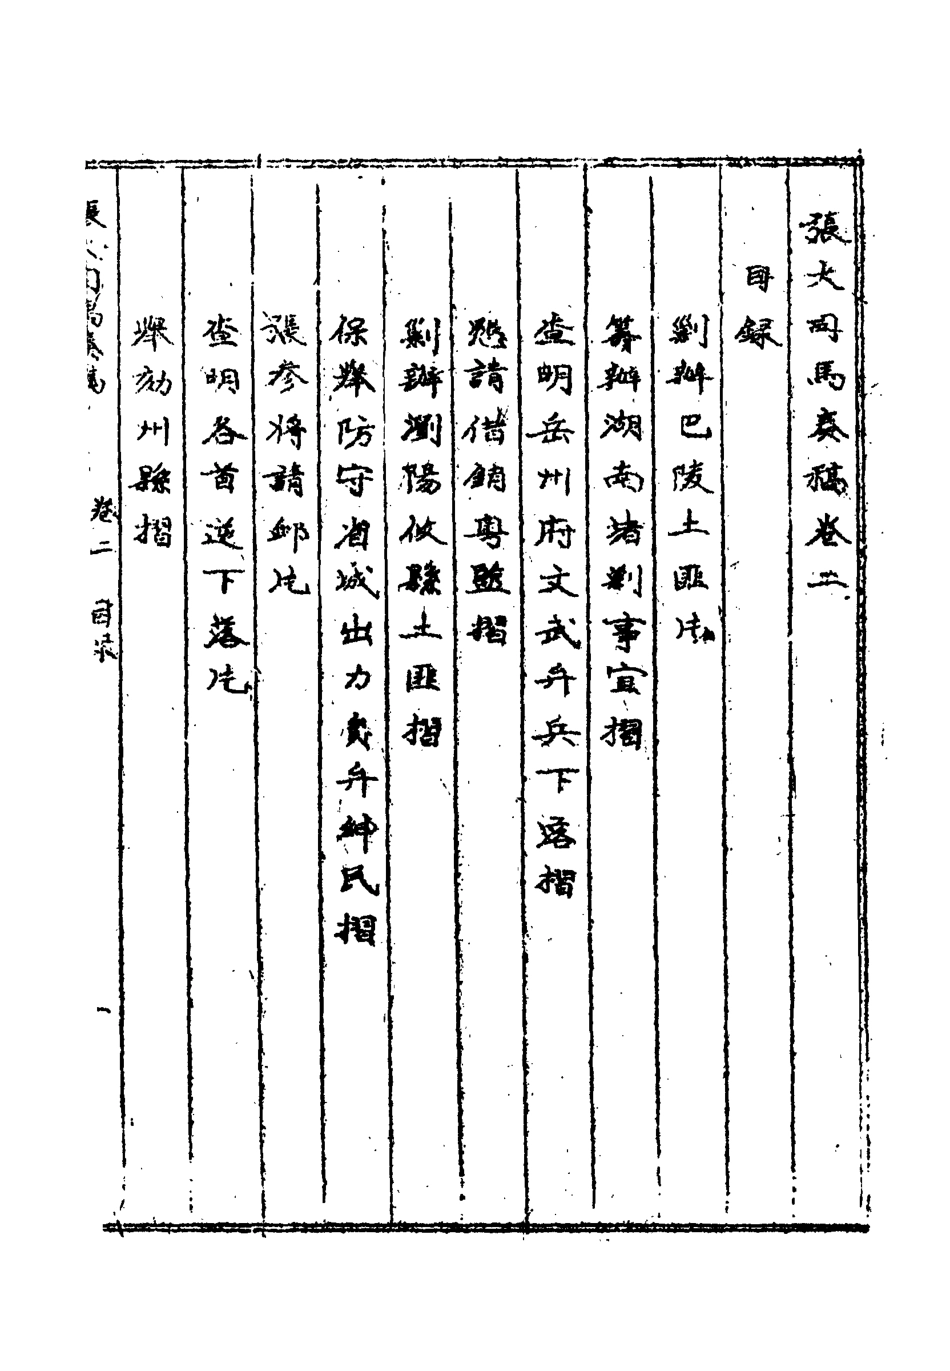 張大司馬奏稿卷二
目錄
剿辦巴陵土匪片
籌辦湖南堵剿事宜摺
查明岳州府文武弁兵下落摺
懇請借銷粵鹽摺
剿辦瀏陽攸縣土匪摺
保舉防守省城出力員弁紳民摺
張參將請卹片
查明各首逆下落片
舉劾州縣摺
張大司馬奏稿 卷二 目录 一